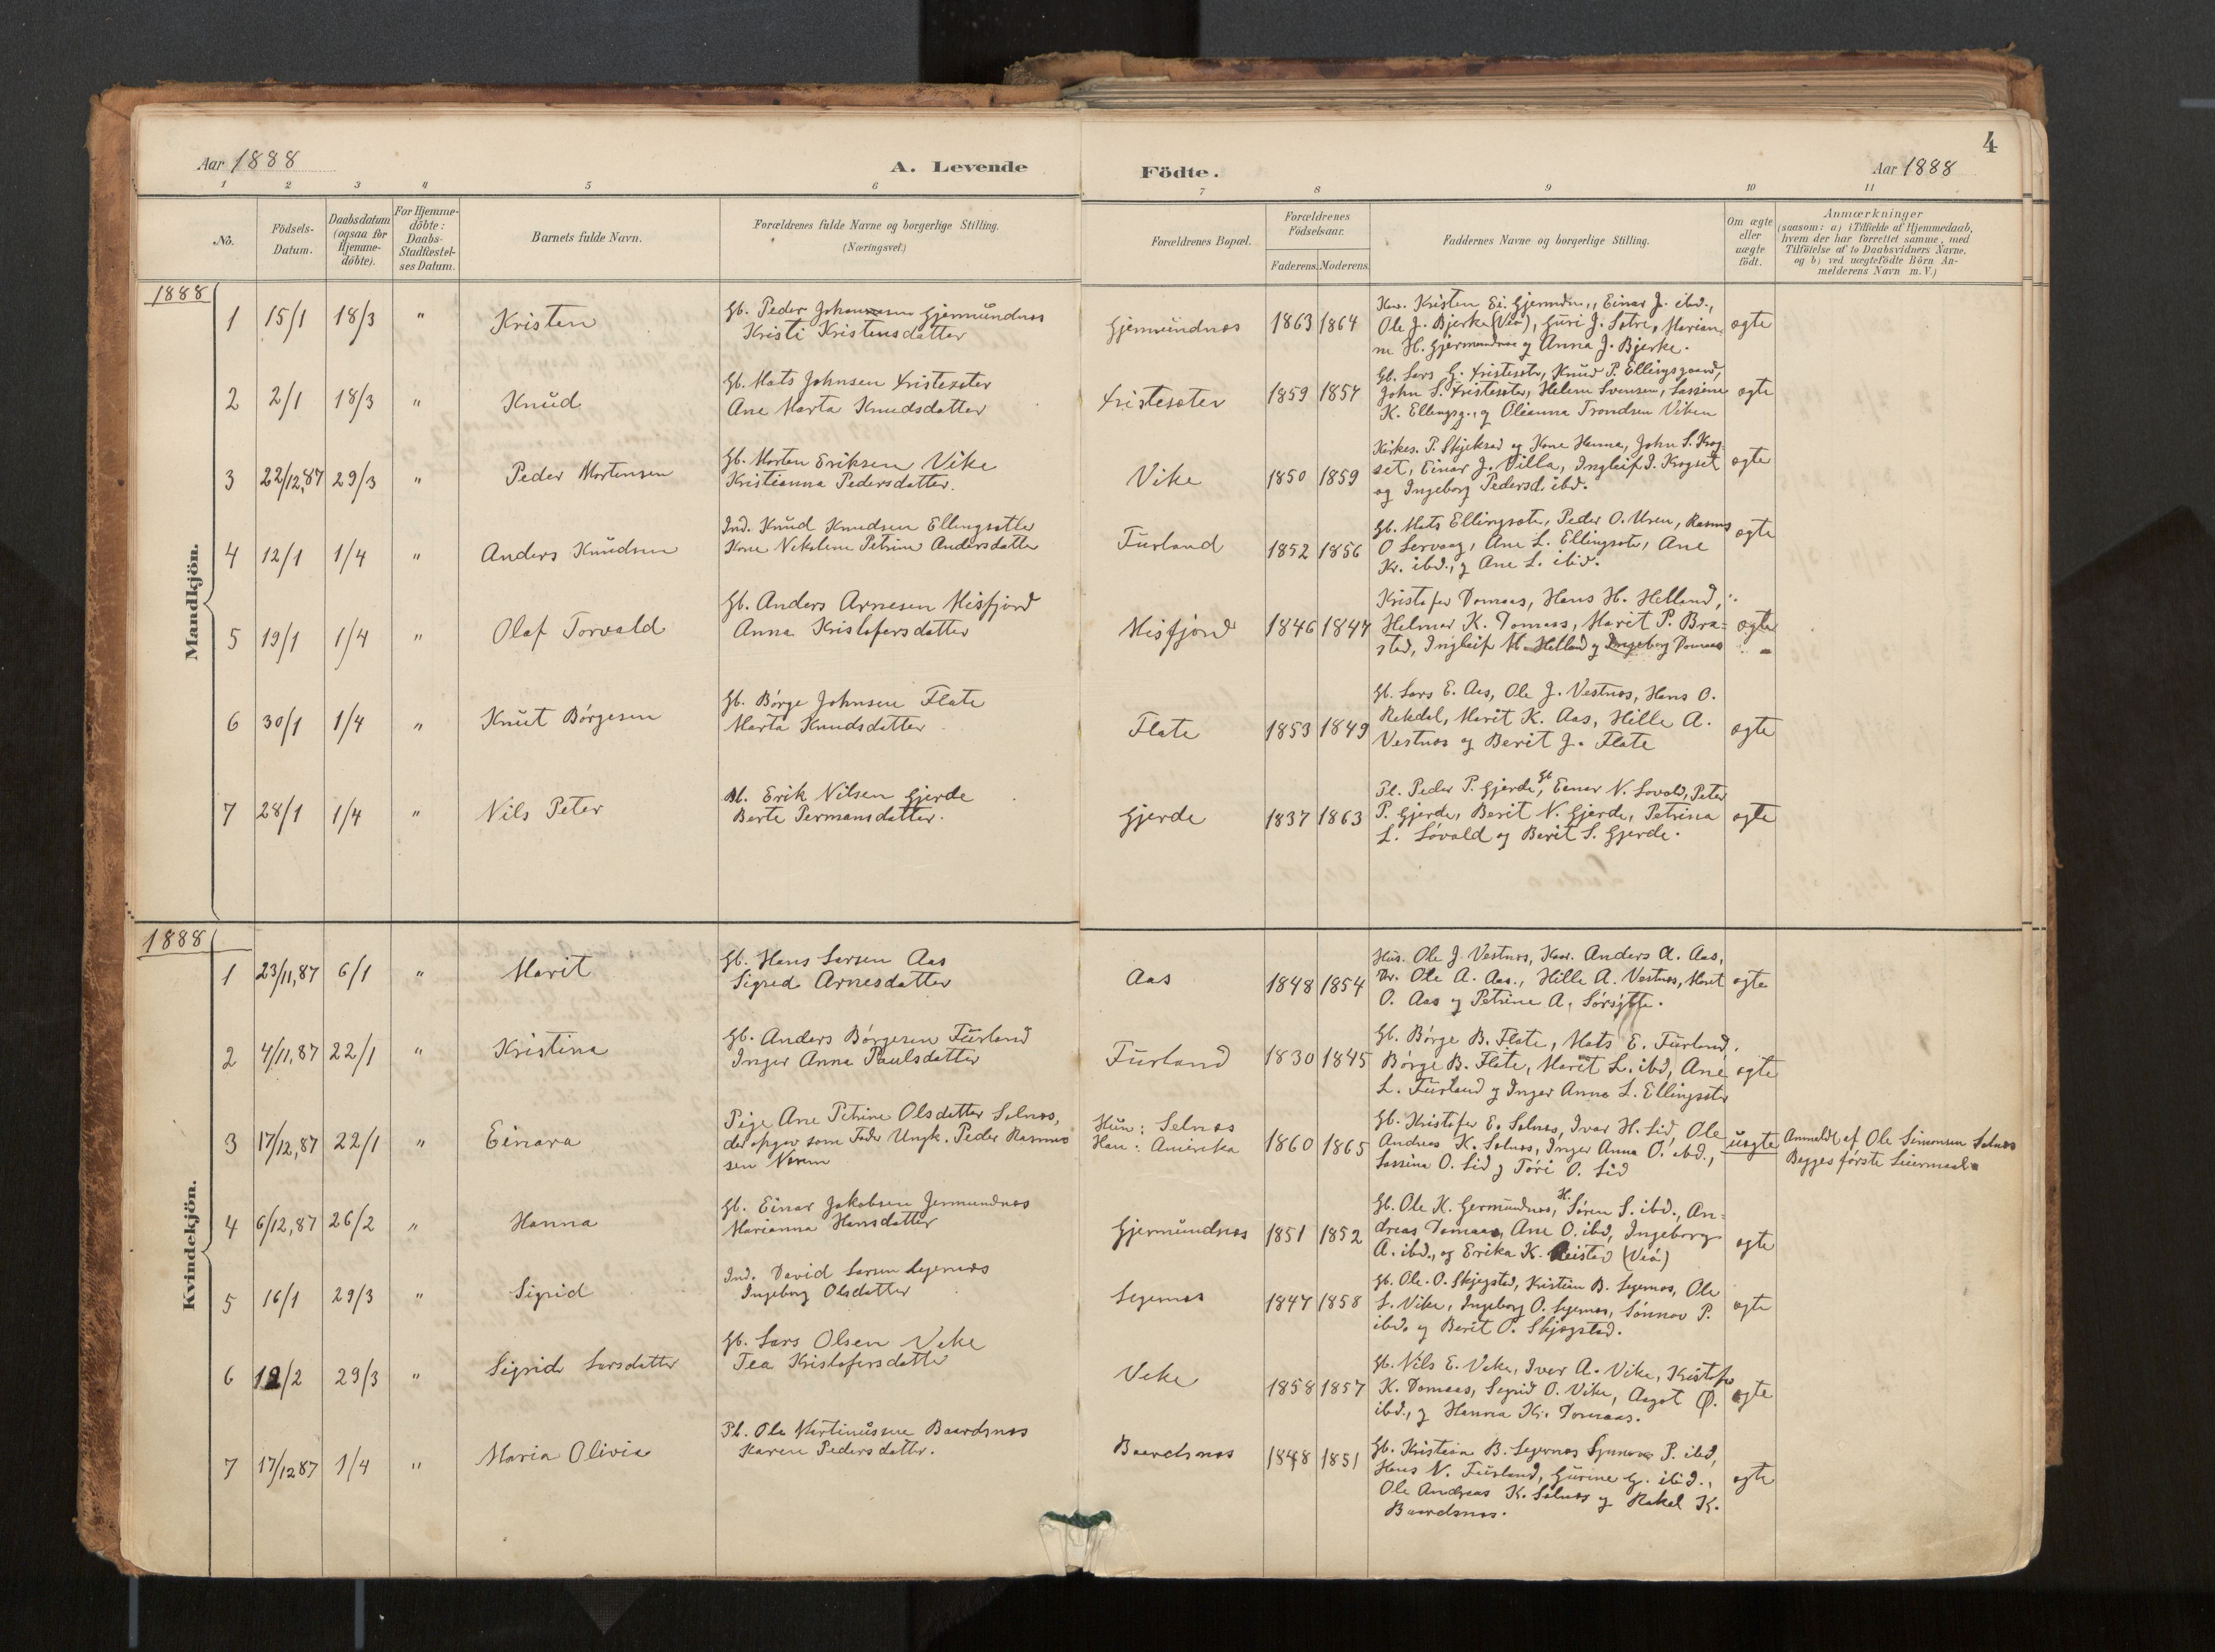 4
Aar 1888
A. Levende
Födte.
Aar 1888
1 2 3 4 5 6 7 8 9 10 11
No.
Födsels-
Datum.
Daabsdatum
(ogsaa for
Hjemme-
döbte).
For Hjemme-
döbte:
Daabs-
Stadfæstel-
ses Datum.
Barnets fulde Navn.
Forældrenes fulde Navne og borgerlige Stilling.
(Næringsvei.)
Forældrenes Bopæl.
Forældrenes
Födselsaar.
Faderens. Moderens.
Faddernes Navne og borgerlige Stilling.
Om ægte
eller
uægte
födt.
Anmærkninger
(saasom: a) i Tilfælde af Hjemmedaab,
hvem der har forrettet samme, med
Tilföielse af to Daabsvidners Navne,
og b) ved uægtefödte Börn An-
melderens Navn m. V.)
Mandkjön.
1888
1 15/1 18/3 " Kristen
Gb. Peder Johannesen Gjermundnæs
Kristi Kristensdatter
Gjermundnæs 1863 1864
Kaar. Kristen Ei. Gjermdn., Einar J. ibd.,
Ole J. Bjerke (Veö), Guri J. Sætre, Marian-
ne H. Gjermundnæs og Anna J. Bjerke.
ægte
2 2/1 18/3 " Knud
Gb. Mats Johnsen Fristesæter
Ane Marta Knudsdatter
Fristesæter 1859 1857
Gb. Lars G. Fristesæter, Knud P. Ellingsgaard,
John L. Fristesæter, Helene Svensen, Lassine
K. Ellingsg., og Oleanna Trondsen Viken
ægte
3 22/12,87 29/3 " Peder Mortensen
Gb. Morten Eriksen Vike
Kristianna Pedersdatter.
Vike 1850 1859
Kirkes. P. Skjelstad og Kone Hanna, John S. Krog-
set, Einar J. Villa, Ingleif I. Krogset
og Ingeborg Pedersd. ibd.
ægte
4 12/1 1/4 " Anders Knudsen
Ind. Knud Knudsen Ellingsæter
Kone Nikoline Petrine Andersdatter
Furland 1852 1856
Gb. Mats Ellingsæter, Peder O. Uren, Rasmus
O Lervaag, Ane L. Ellingsæter, Ane
Kr. ibd., og Ane L. ibid.
ægte
5 19/1 1/4 " Olaf Torvald
Gb. Anders Arnesen Misfjord
Anna Kristofersdatter
Misfjord 1846 1847
Kristofer Tomaas, Hans H. Helland,
Helmer K. Tomaas, Marit P. Bra-
stad, Ingleif M. Helland og Ingeborg Tomaas
ægte
6 30/1 1/4 " Knut Börgesen
Gb. Börge Johnsen Flate
Marta Knudsdatter
Flate 1853 1849
Gb. Lars E. Aas, Ole J. Vestnæs, Hans O.
Rekdal, Marit K. Aas, Hille A.
Vestnæs og Berit J. Flate
ægte
7 28/1 1/4 " Nils Peter
Pl. Erik Nilsen Gjerde
Berte Permansdatter.
Gjerde 1837 1863
Pl. Peder P. Gjerde, Gb. Einar N. Lovold, Peter
P. Gjerde, Berit N. Gjerde, Petrina
L. Lövold og Berit S. Gjerde.
ægte
Kvindekjön.
1888
1 23/11,87 6/1 " Marit
Gb. Hans Larsen Aas
Sigrid Arnesdatter
Aas 1848 1854
Hus. Ole J. Vestnæs, Kaar. Anders A. Aas,
Dr. Ole A. Aas., Hille A. Vestnæs, Marit
O. Aas og Petrine A.
ægte
2 4/11,87 22/1 " Kristina
Gb. Anders Börgesen Furland
Inger Anna Paulsdatter
Furland 1830 1845
Gb. Börge B. Flate, Mats E. Furland,
Börge B. Flate, Marit L. ibd, Ane
L. Furland og Inger Anna L. Ellingsæter
ægte
3 17/12,87 22/1 " Einara
Pige Ane Petrine Olsdatter Selnæs,
der opgav som Fader Ungk. Peder Rasmus-
sen
Hun: Selnæs
Han: Amerika
1860 1865
Gb. Kristofer E. Selnæs, Ivar H. Lid, Ole
Andreas K. Selnæs, Inger Anna O. ibd.,
Lassina O. Lid og Töri O. Lid
uægte
Anmeldt af Ole Simonsen Selnæs
Begges förste Leiermaal.
4 6/12,87 26/2 " Hanna
Gb. Einar Jakobsen Jermundnæs
Marianna Hansdatter
Gjermundnæs 1851 1852
Gb. Ole K. Germundnæs, H. Sören S. ibd., An-
dreas Tomaas, Ane O. ibd, Ingeborg
A. ibd., og Erika K. Reistad (Veö)
ægte
5 16/1 29/3 " Sigrid
Ind. David Larsen Legernæs
Ingeborg Olsdatter
Legernæs 1847 1858
Gb. Ole. O. Skjegstad, Kristian B. Legernæs, Ole
L. Vike, Ingeborg O. Legernæs, Sönnov P.
ibd. og Berit O. Skjegstad.
ægte
6 12/2 29/3 " Sigrid Larsdatter
Gb. Lars Olsen Vike
Tea Kristofersdatter
Vike 1858 1857
Gb. Nils E. Vike, Iver A. Vike, Kristofer
K. Tomaas, Sigrid O. Vike, Aagot Ø.
ibd., og Hanna Kr. Tomaas.
ægte
7 17/12 87 1/4 " Maria Olivia
Pl. Ole Martinussen Baardsnæs
Karen Pedersdatter.
Baardsnæs 1848 1851
Gb. Kristian B. Legernæs Synnove P. ibd,
Hans N. Furland, Gurine G. ibid.,
Ole Andreas K. Selnæs og Rakel K.
Baardsnæs.
ægte